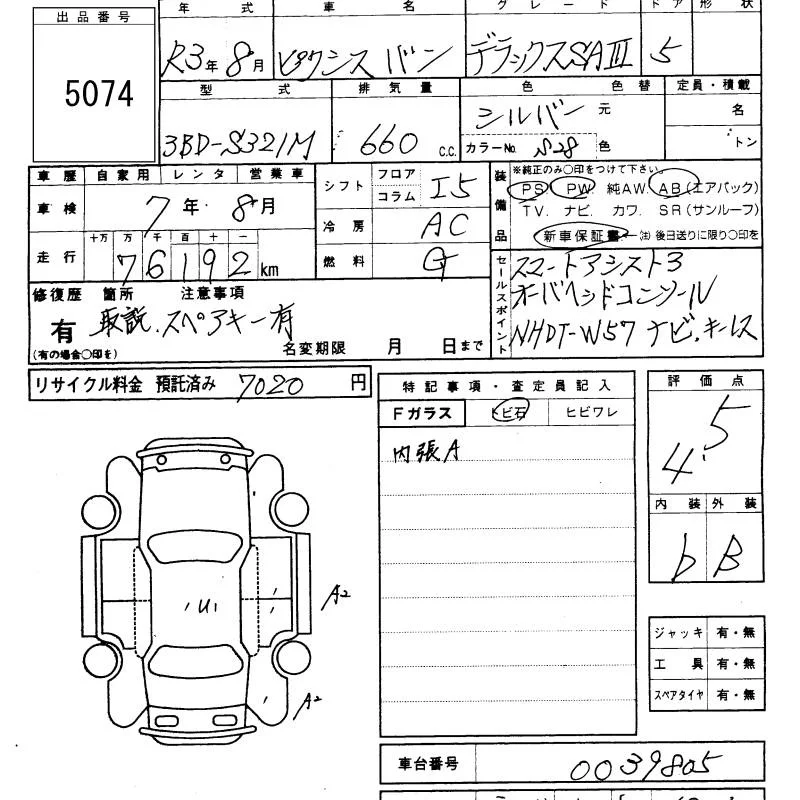 出品番号
5074
年 式 車 名 グ レ ー ド ド ア 形 状
R3年 8月 ピクシス バン デラックスSAIII 5
型 式 排気量 色 色替 定員・積載
3BD-S321M 660 c.c. シルバー 元 名
カラーNo. S28 色 トン
車歴 自家用 レンタ 営業車
車検 7年 8月
走行 十万 万 千 百 十 一
76192 km
シフト フロア コラム I5
冷房 AC
燃料 G
装備品
※純正のみ○印をつけて下さい。
PS PW 純AW. AB(エアバック)
TV. ナビ カワ. SR(サンルーフ)
新車保証書 ㊟ 後日送りに限り○印を
セールスポイント
スマートアシスト3
オーバヘッドコンソール
NHDT-W57 ナビ.キーレス
修復歴 箇所 注意事項
有 取説.スペアキー有
(有の場合○印を) 名変期限 月 日まで
リサイクル料金 預託済み 7020 円
特記事項・査定員記入
Fガラス トビ石 ヒビワレ
内張A
評価点
4.5
内装 外装
b B
U
A2
A2
ジャッキ 有・無
工 具 有・無
スペアタイヤ 有・無
車台番号 0039805